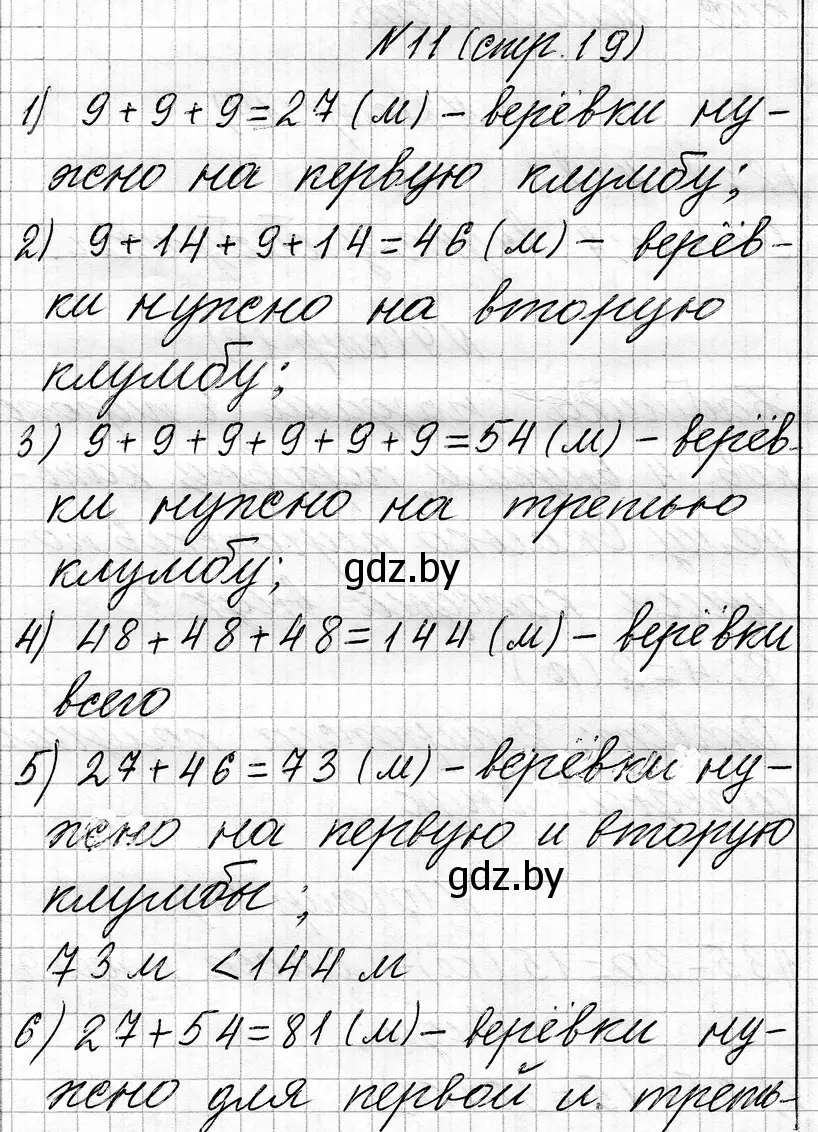 N11 (стр. 19)
1) 9+9+9=27 (м) – верёвки ну-
жно на первую клумбу;
2) 9+14+9+14=46 (м) – верёв-
ки нужно на вторую
клумбу;
3) 9+9+9+9+9+9=54 (м) – верёв-
ки нужно на третью
клумбу;
gdz.by
4) 48+48+48=144 (м) – верёвки
всего
5) 27+46=73 (м) – верёвки ну-
жно на первую и вторую
клумбы;
gdz.by
73 м < 144 м
6) 27+54=81 (м) – верёвки ну-
жно для первой и треть-